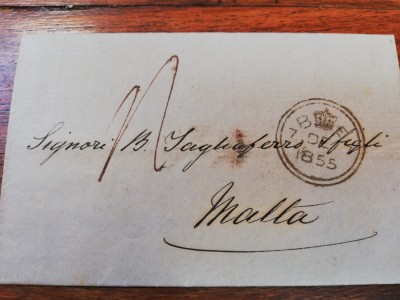 Signori B. Tagliaferro & figli
Malta
1855